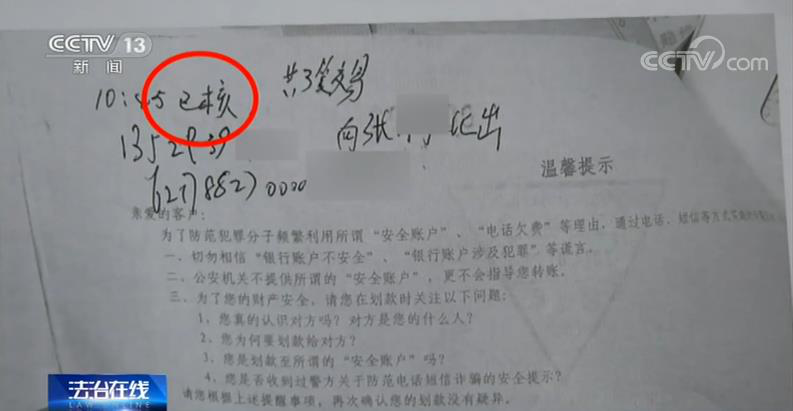 CCTV 13
新闻
CCTV.com
10:45 已核
共3笔交易
1352939
向张
汇出
(217882)0000
温馨提示
亲爱的客户:
为了防范犯罪分子频繁利用所谓“安全账户”、“电话欠费”等理由,通过电话、短信等方式
一、切勿相信“银行账户不安全”、“银行账户涉及犯罪”等谎言。
二、公安机关不提供所谓的“安全账户”,更不会指导您转账。
三、为了您的财产安全,请您在划款时关注以下问题:
1、您真的认识对方吗?对方是您的什么人?
2、您为何要划款给对方?
3、您是划款至所谓的“安全账户”吗?
4、您是否收到过警方关于防范电话短信诈骗的安全提示?
请您根据上述提醒事项,再次确认您的划款没有疑异。
法治在线
LAW ONLINE